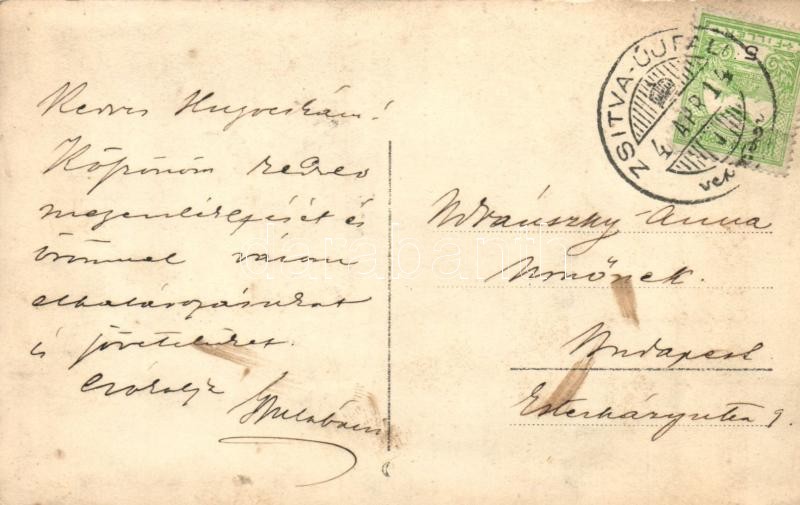 Kedves Hugocskám!
Köszönöm kedves
megemlékezését és
örömmel várom
elhatározásukat
és jövetelüket.
Csókolja
Gyulabácsi
ZSITVA-ÚJFALU
4 APR 14
5
darabanth
Udvánszky Anna
Urnőnek.
Budapest
Eszterházyutca 9.